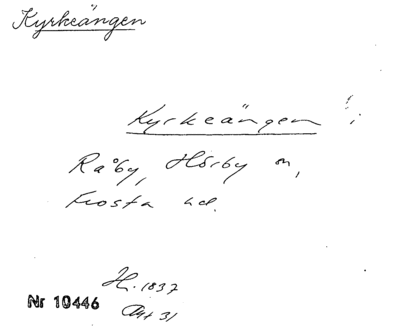 Kyrkeängen
Kyrkeängen
Råby, Hörby sn,
Frosta hd.
H. 1837
Akt 31
Nr 10446